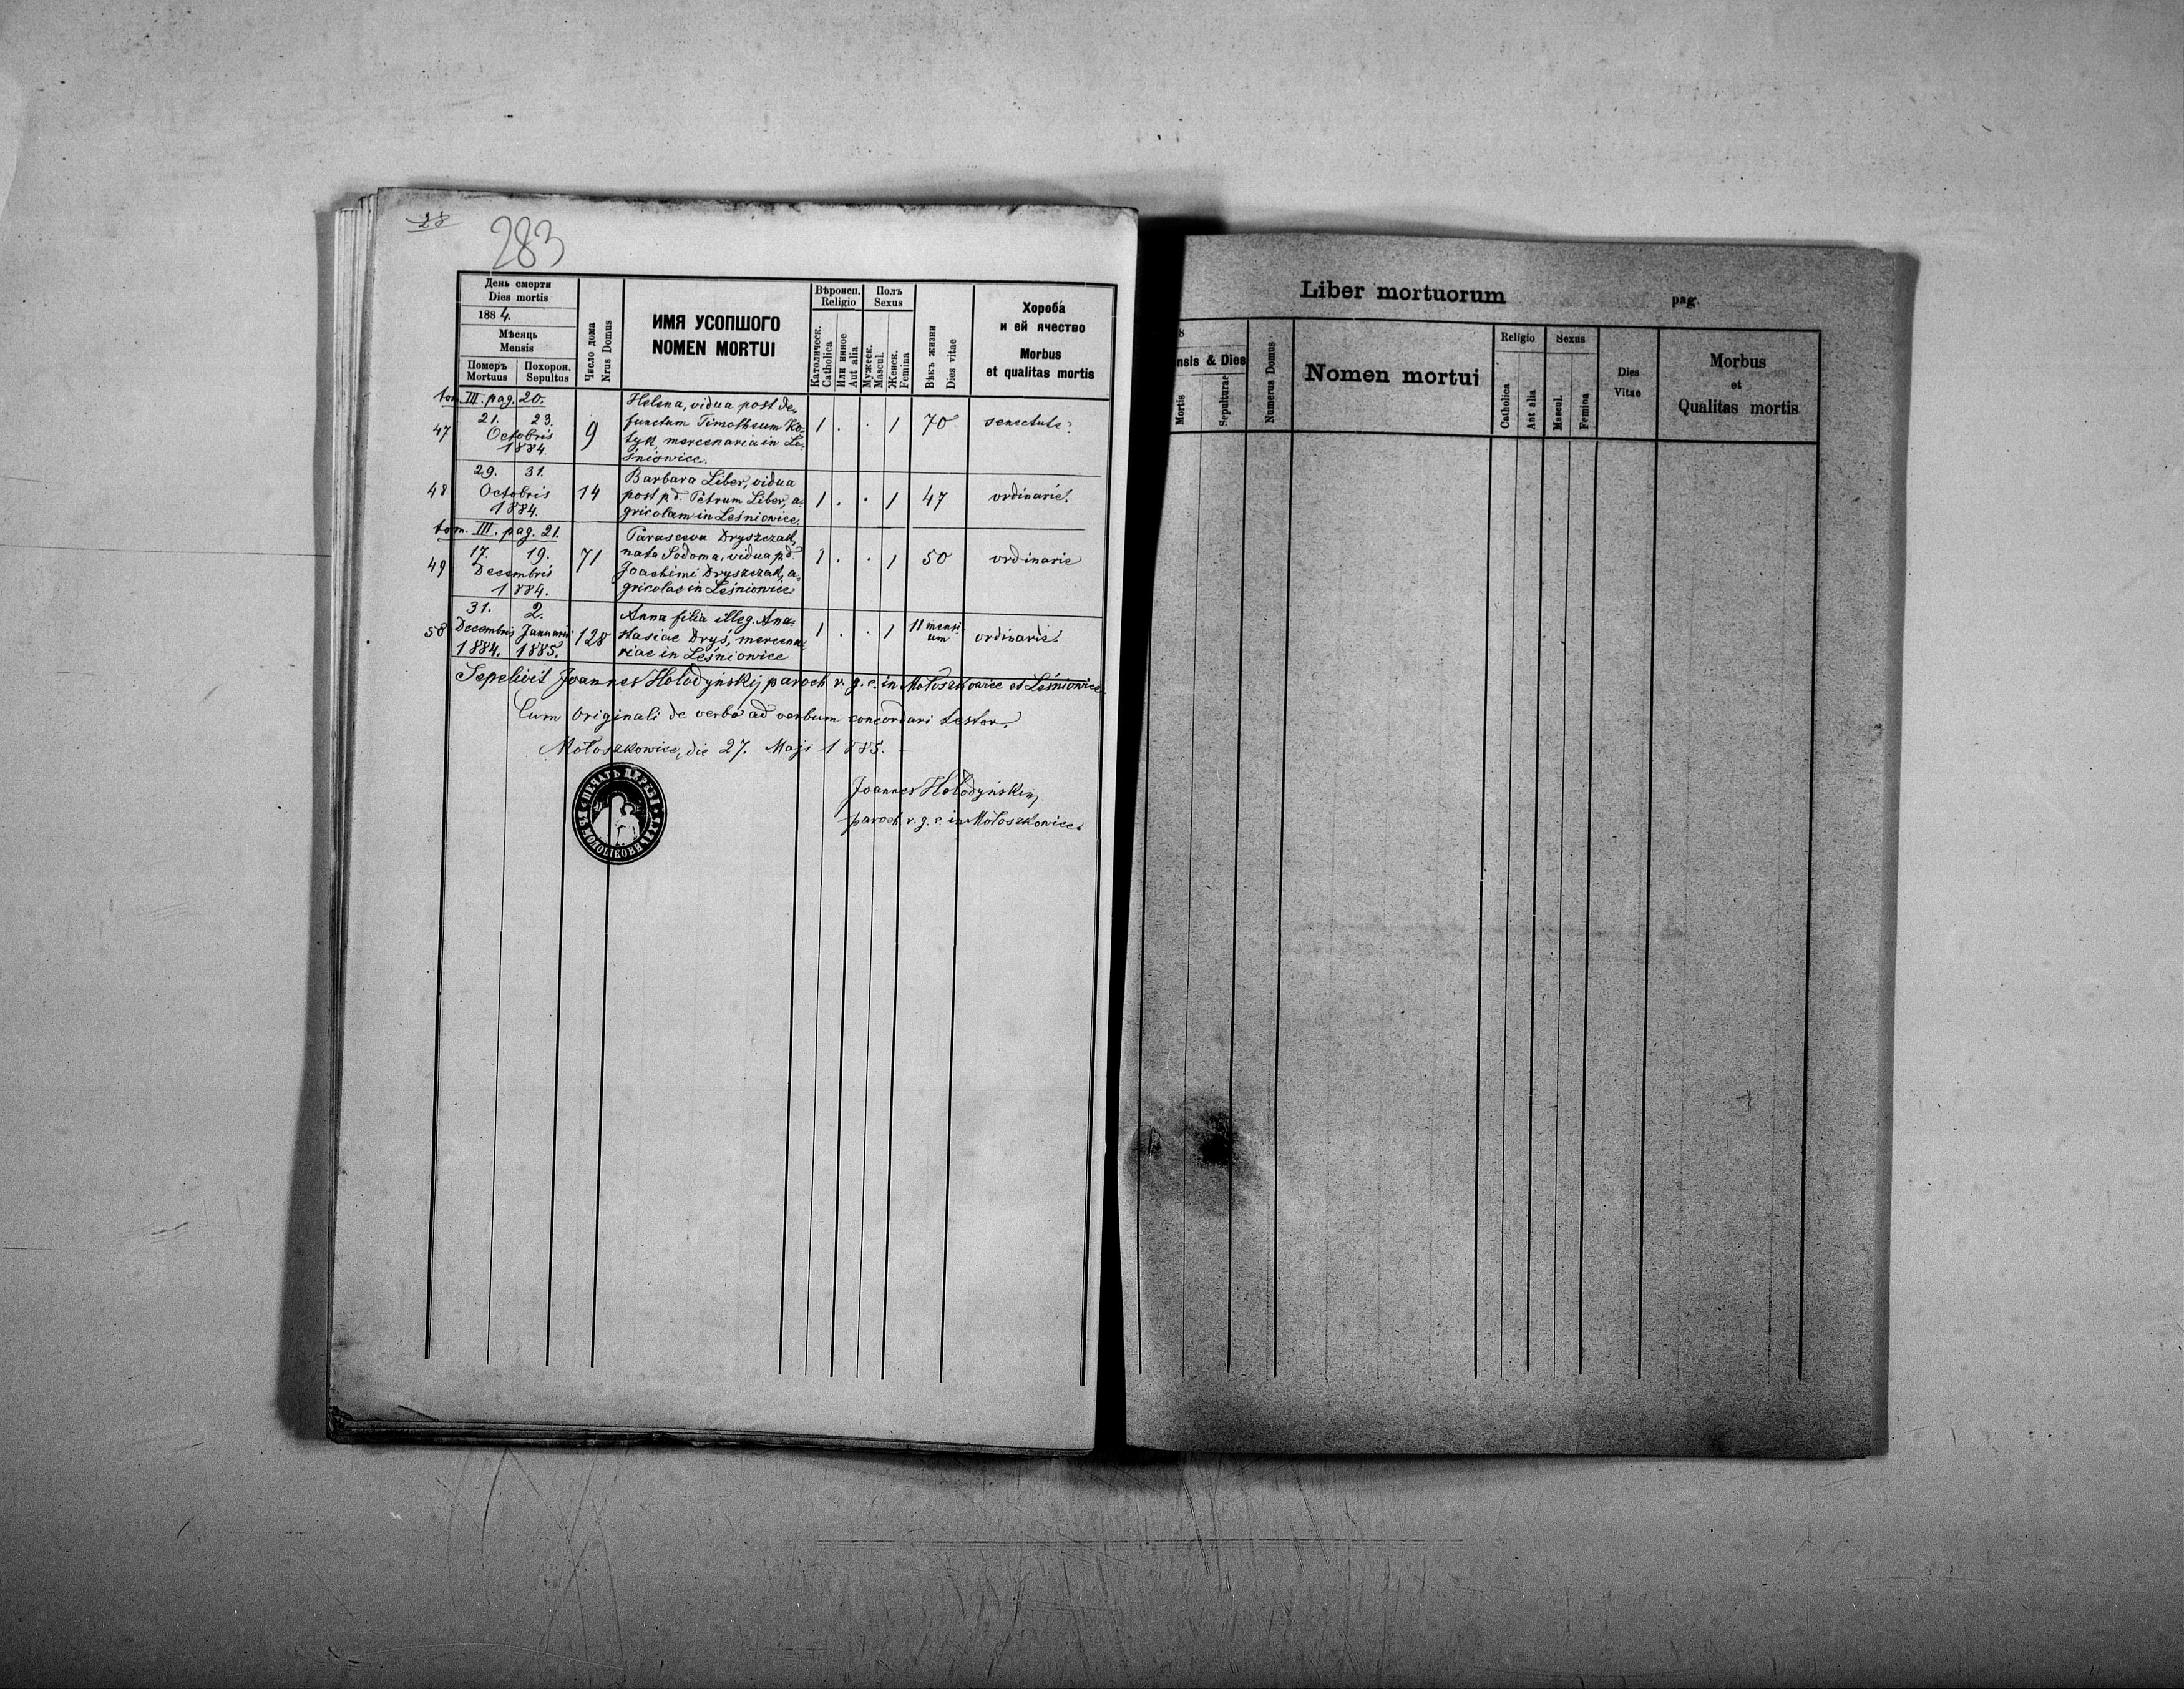 28
283
День смерти
Dies mortis
1884.
Мѣсяць
Mensis
Померъ
Mortuus
Похорон.
Sepultus
Число дома
Nrus Domus
ИМЯ УСОПШОГО
NOMEN MORTUI
Вѣроисп.
Religio
Католическ.
Catholica
Или инное
Aut alia
Полъ
Sexus
Мужеск.
Mascul.
Женск.
Femina
Вѣкъ жизни
Dies vitae
Хороба́
и ей ячество
Morbus
et qualitas mortis
tom. III. pag. 20.
47 21. 23. Octobris 1884. 9
Helena, vidua post de-
functum Timotheum Ko-
tyk mercenaria in Le-
śniowice.
1 . . 1 70 senectute.
48 29. 31. Octobris 1884. 14
Barbara Liber, vidua
post p.d. Petrum Liber, a-
gricolam in Leśniowice,
1 . . 1 47 ordinarie.
tom. III. pag. 21.
49 17. 19. Decembris 1884. 71
Parasceva Dryszczak,
nata Sodoma, vidua p.d.
Joachimi Dryszczak, a-
gricolae in Leśniowice
1 . . 1 50 ordinarie
50 31. Decembris 1884. 2. Januarii 1885. 128
Anna filia illeg. Ana-
stasiae Dryś, mercena-
riae in Leśniowice
1 . . 1 11 mensi
um ordinarie.
Sepelivit Joannes Hołodyńskij paroch. r. g. c. in Mołoszkowice et Leśniowice.
Cum originali de verbo ad verbum concordari testor.
Mołoszkowice, die 27. Maji 1885.
Joannes Hołodyńskij
paroch. r. g. c. in Mołoszkowice.
Liber mortuorum
pag.
8
nsis & Dies
Mortis
Sepulturae
Numerus Domus
Nomen mortui
Religio
Catholica
Aut alia
Sexus
Mascul.
Femina
Dies
Vitae
Morbus
et
Qualitas mortis